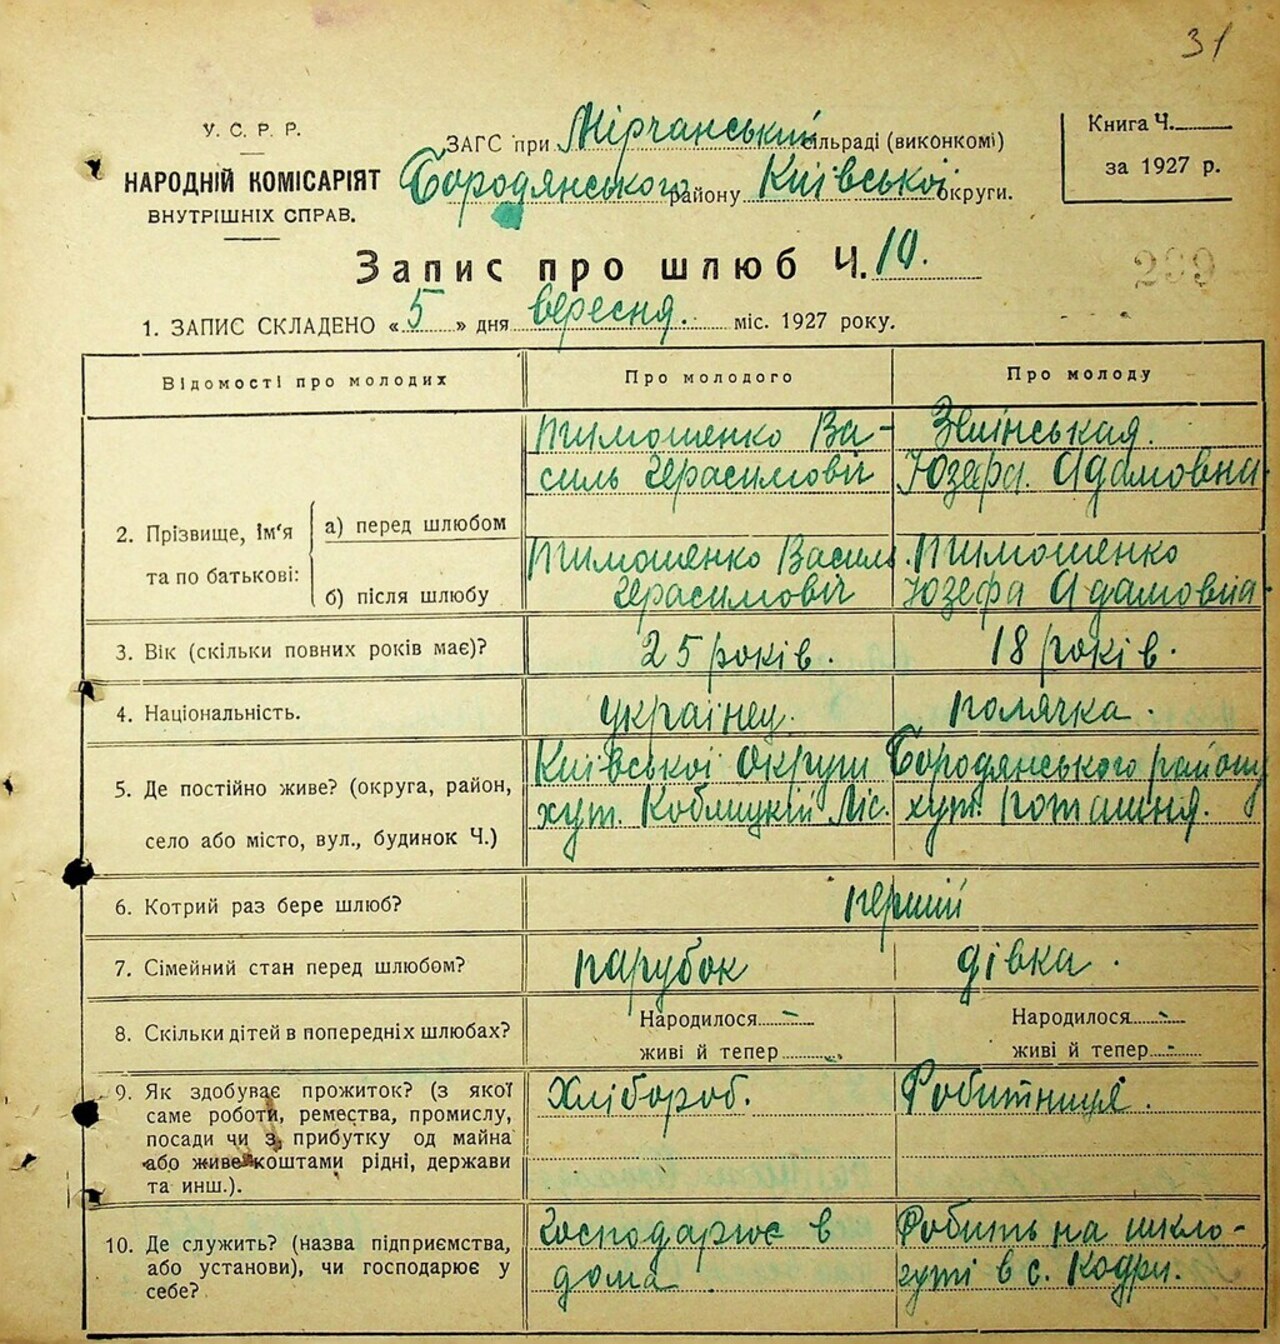 31
У. С. Р. Р.
НАРОДНІЙ КОМІСАРІЯТ
ВНУТРІШНІХ СПРАВ.
ЗАГС при Мірчанський сільраді (виконкомі)
Бородянського району Київської округи.
Книга Ч.
за 1927 р.
Запис про шлюб Ч. 10.
299
1. ЗАПИС СКЛАДЕНО « 5 » дня вересня. міс. 1927 року.
Відомості про молодих
Про молодого
Про молоду
2. Прізвище, Ім'я та по батькові:
а) перед шлюбом
Тимошенко Ва-
силь Герасимовіч
Юзефа Адамовна
б) після шлюбу
Тимошенко Василь
Герасимовіч
Тимошенко
Юзефа Адамовна
3. Вік (скільки повних років має)?
25 років.
18 років.
4. Національність.
українец.
полячка.
5. Де постійно живе? (округа, район,
село або місто, вул., будинок Ч.)
Київської Округи
хут. Коблицкій Ліс.
Бородянського району
хут. Поташня.
6. Котрий раз бере шлюб?
перший
7. Сімейний стан перед шлюбом?
парубок
дівка.
8. Скільки дітей в попередніх шлюбах?
Народилося -
живі й тепер
Народилося -
живі й тепер -
9. Як здобуває прожиток? (з якої
саме роботи, ремества, промислу,
посади чи з прибутку од майна
або живе коштами рідні, держави
та инш.).
Хлібороб.
Робитниця.
10. Де служить? (назва підприємства,
або установи), чи господарює у
себе?
Господарює в
дома
Робить на шкло-
гуті в с. Кодри.